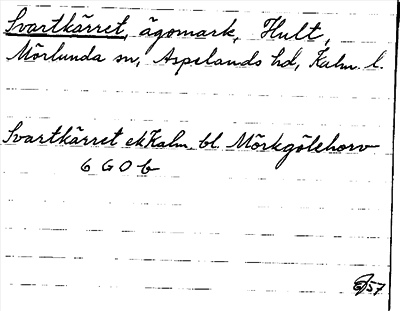 Svartkärret, ägomark, Hult,
Mörlunda sn, Aspelands hd, Kalm. l.
Svartkärret ekKalm. bl. Mörkgölehorv
6 G O b
57